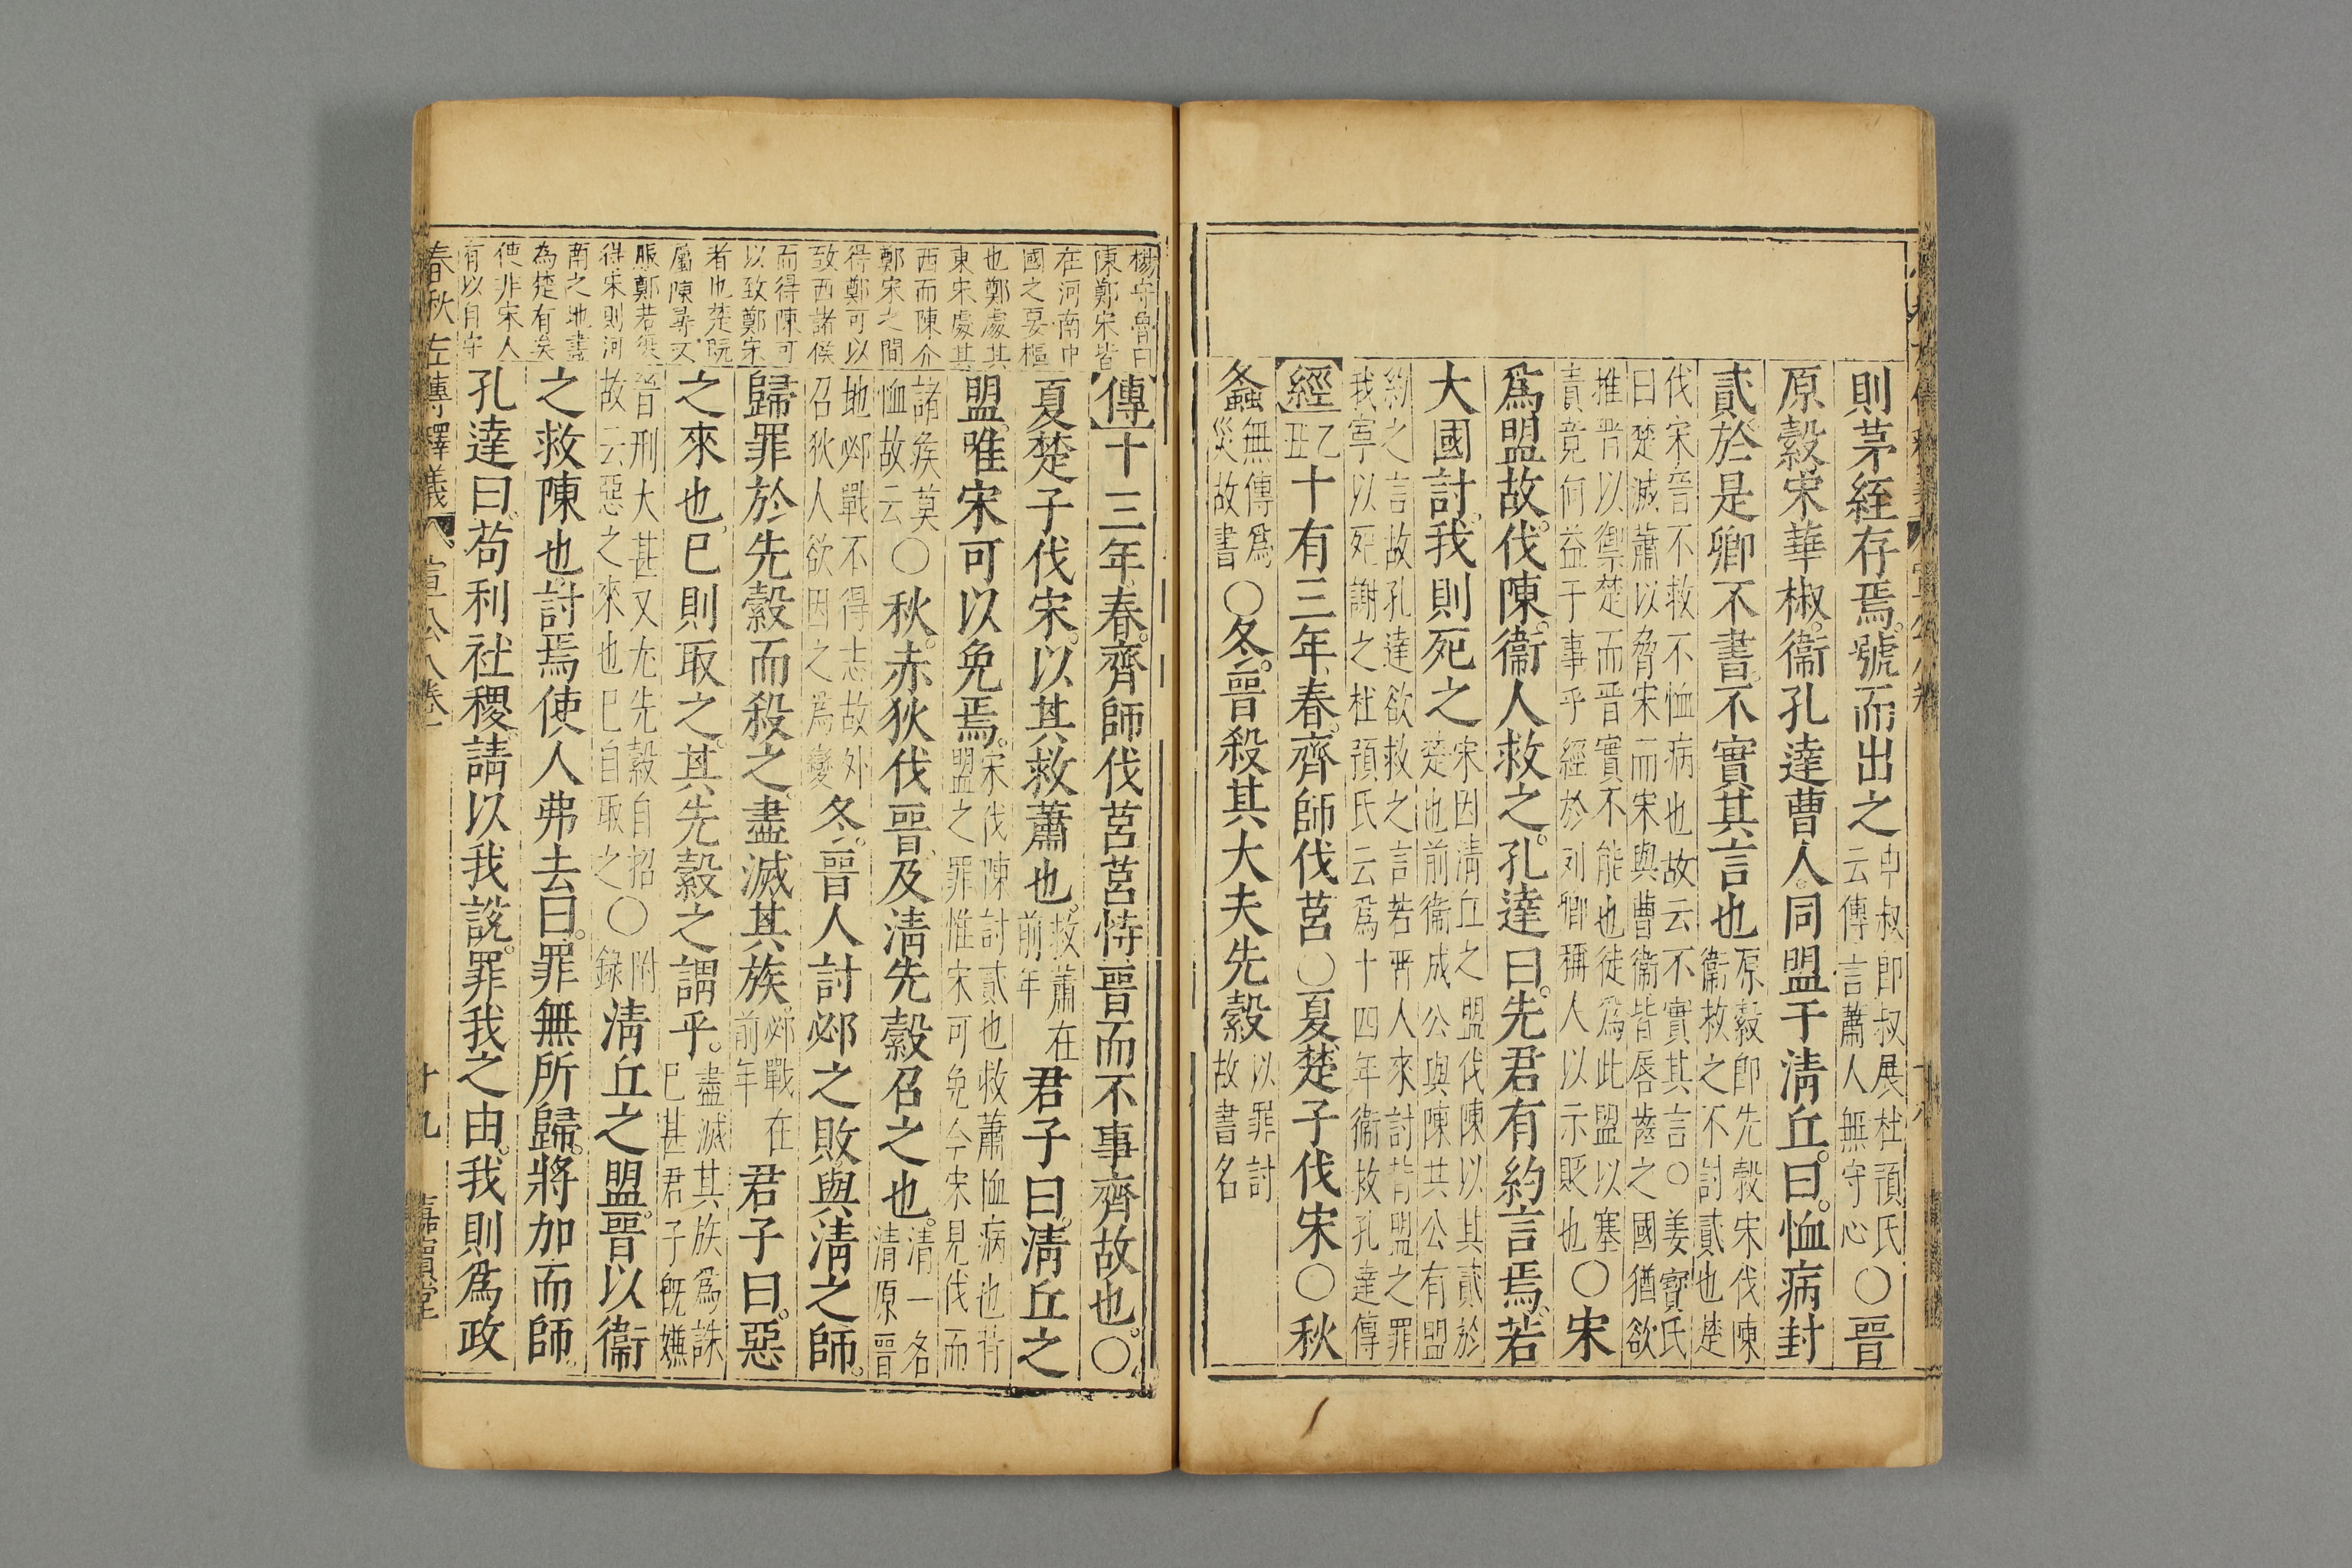 則茅絰存焉。號而出之申叔即叔展杜預氏云傳言蕭人無守心○晉
原縠宋華椒。衞孔達曹人。同盟于淸丘。曰。恤病封
貳。於是卿不書。不實其言也原縠即先縠宋伐陳衞救之不討貳也楚
伐宋晉不救不恤病也故云不實其言○姜寶氏
曰楚滅蕭以脅宋而宋與曹衞皆唇齒之國猶欲
推晉以禦楚而晉實不能也徒爲此盟以塞
責竟何益于事乎經於列卿稱人以示貶也○宋
爲盟故。伐陳。衞人救之。孔達曰。先君有約言焉。若
大國討。我則死之宋因淸丘之盟伐陳以其貳於楚也前衞成公與陳共公有盟
約之言故孔達欲救之言若晉人來討背盟之罪
我寧以死謝之杜預氏云爲十四年衞救孔達傳
經乙丑十有三年。春。齊師伐莒○夏。楚子伐宋○秋
螽無傳爲災故書○冬。晉殺其大夫先縠以罪討故書名
楊守魯曰
陳鄭宋皆
在河南中
國之要樞
也鄭處其
東宋處其
西而陳介
鄭宋之間
得鄭可以
致西諸侯
而得陳可
以致鄭宋
者也楚旣
屬陳尋又
服鄭若獎
得宋則河
南之地盡
為楚有矣
使非宋人
有以自守
傳十三年。春。齊師伐莒莒恃晉而不事齊故也。○
夏楚子伐宋。以其救蕭也。救蕭在前年君子曰。淸丘之
盟。唯宋可以免焉。宋伐陳討貳也救蕭恤病也背盟之罪惟宋可免今宋見伐而
諸矦莫恤故云○秋。赤狄伐晉。及淸先縠召之也。淸一名淸原晉
地邲戰不得志故外召狄人欲因之爲變冬。晉人討邲之敗與淸之師。
歸罪於先縠而殺之。盡滅其族邲戰在前年君子曰。惡
之來也。巳則取之。其先縠之謂乎。盡滅其族爲誅巳甚君子旣嫌
晉刑大甚又尤先縠自招故云惡之來也巳自取之○附錄淸丘之盟。晉以衞
之救陳也。討焉使人弗去曰。罪無所歸。將加而師。
孔達曰。苟利社稷。請以我說。罪我之由。我則爲政
春秋左傳釋義 宣公八卷 十九 嘉賓堂